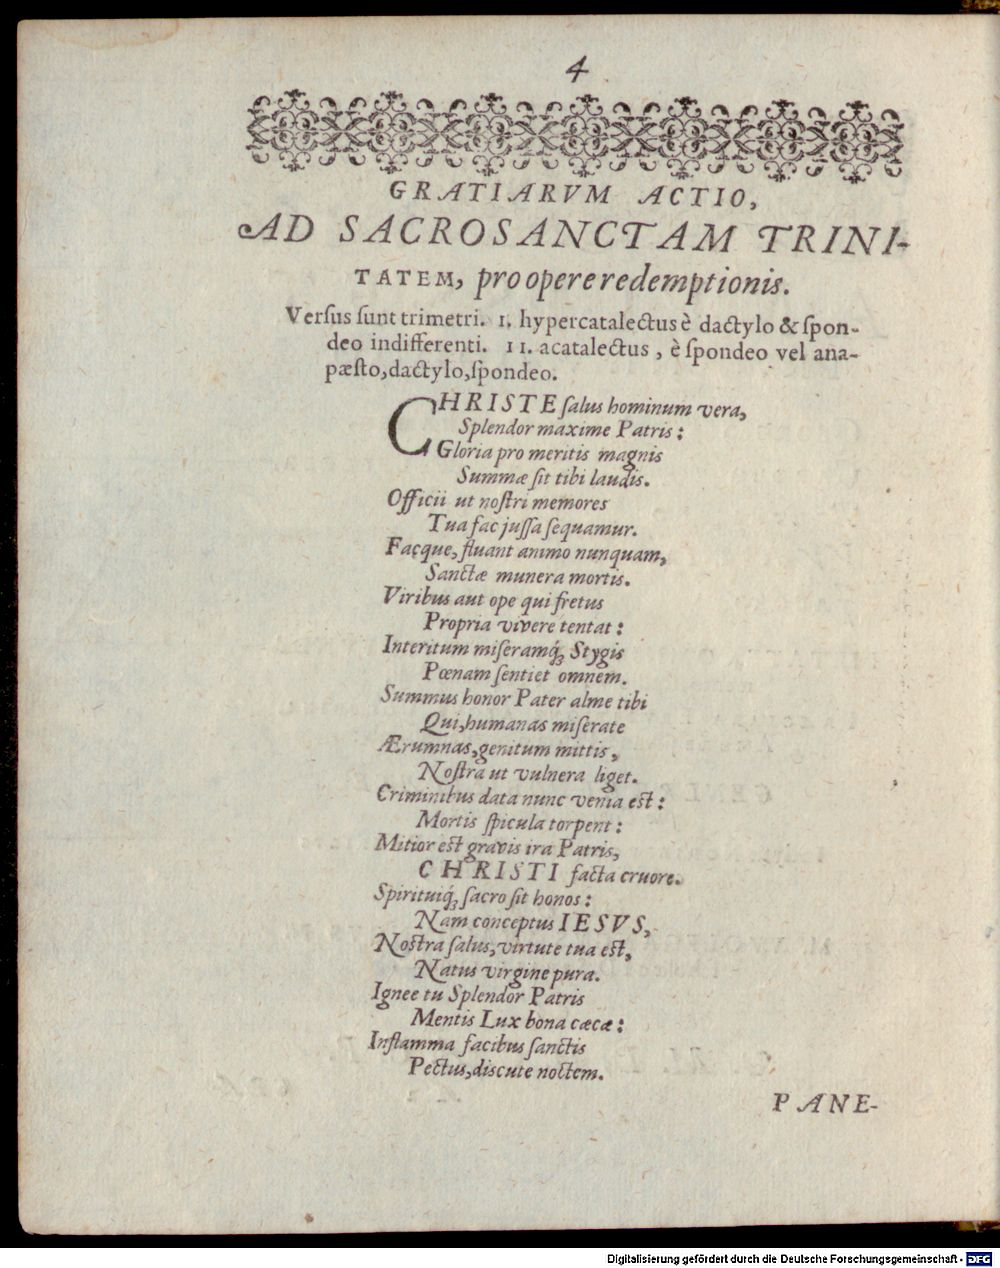 4
GRATIARVM ACTIO,
AD SACROSANCTAM TRINI-
TATEM, pro opere redemptionis.
Verſus ſunt trimetri. 1. hypercatalectus è dactylo & ſpon-
deo indifferenti. 11. acatalectus, è ſpondeo vel ana-
pæſto, dactylo, ſpondeo.
CHRISTE ſalus hominum vera,
Splendor maxime Patris:
Gloria pro meritis magnis
Summæ ſit tibi laudis.
Officii ut noſtri memores
Tua fac juſſa ſequamur.
Facque, fluant animo nunquam,
Sanctæ munera mortis.
Viribus aut ope qui fretus
Propria vivere tentat:
Interitum miſeramq́; Stygis
Pœnam ſentiet omnem.
Summus honor Pater alme tibi
Qui, humanas miſerate
Ærumnas, genitum mittis,
Noſtra ut vulnera liget.
Criminibus data nunc venia eſt:
Mortis ſpicula torpent:
Mitior eſt gravis ira Patris,
CHRISTI facta cruore.
Spirituiq́; ſacro ſit honos:
Nam conceptus IESVS,
Noſtra ſalus, virtute tua eſt,
Natus virgine pura.
Ignee tu Splendor Patris
Mentis Lux bona cæcæ:
Inflamma facibus ſanctis
Pectus, discute noctem.
PANE-
Digitalisierung gefördert durch die Deutsche Forschungsgemeinschaft - DFG